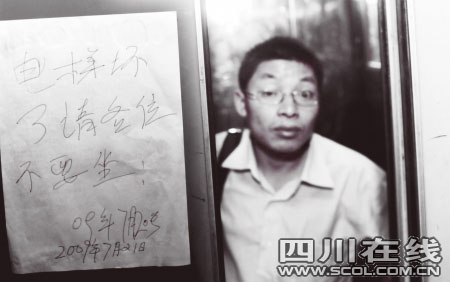 电梯坏
了请各位
不要坐！
09年7月
2009年7月21日
四川在线
WWW.SCOL.COM.CN